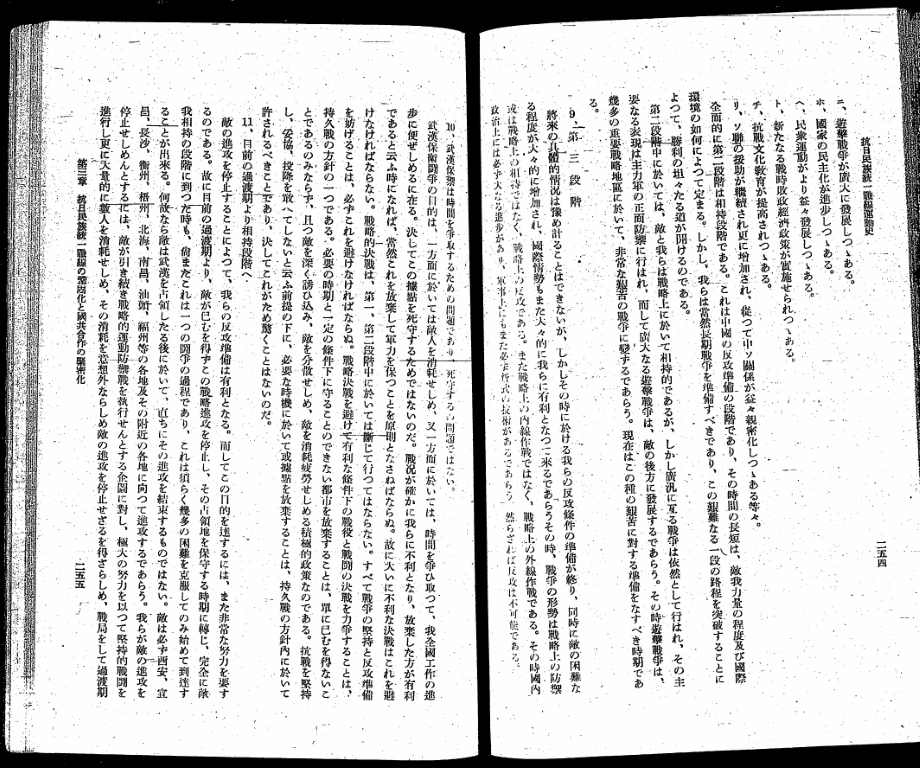 抗日民族統一戰線運動史
二五四
ニ、遊擊戰爭が廣大に發展しつゝある。
ホ、國家の民主化が進步しつゝある。
ヘ、民衆運動がより益々發展しつゝある。
ト、新たなる戰時財政經濟政策が實施せられつゝある。
チ、抗戰文化敎育が提高されつゝある。
リ、ソ聯の援助が繼續され更に增加され、從つて中ソ關係が益々親密化しつゝある等々。
全面的に第二段階は相持段階である。これは中國の反攻準備の段階であり、その時間の長短は、敵我力量の程度及び國際
環境の如何によつて定まる。しかし、我らは當然長期戰爭を準備すべきであり、この艱難なる一段の路程を突破することに
よつて、勝利の坦々たる道が開けるのである。
第二段階中に於いては、敵と我らは戰略上に於いて相持的であるが、しかし廣汎に亙る戰爭は依然として行はれ、その主
要なる表現は主力軍の正面防禦に行はれ、而して廣大なる遊擊戰爭は、敵の後方に發展するであらう。その時遊擊戰爭は、
幾多の重要戰略地區に於いて、非常な艱苦の戰爭に變ずるであらう。現在はこの種の艱苦に對する準備をなすべき時期であ
る。
9、第三段階
將來の具體的情況は豫め計ることはできないが、しかしその時に於ける我らの反攻條件の準備が終り、同時に敵の困難な
る程度が大々的に增加され、國際情勢もまた大々的に我らに有利となつて來るであらうその時、戰爭の形勢は戰略上の防禦
或は戰略上の相持ではなく、戰略上の反攻である。また戰略上の內線作戰ではなく、戰略上の外線作戰である。その時國內
政治上には必ず大なる進步があり、軍事上にもまた必ず新式の技術があるであらう。然らざれば反攻は不可能である。
10、武漢保禦は時間を爭取するための問題であり、死守する問題ではない。
武漢保衞鬪爭の目的は、一方面に於いては敵人を消耗せしめ、又一方面に於いては、時間を爭ひ取つて、我全國工作の進
步に便ぜしめるに在る。決してこの據點を死守するためではないのだ。戰況が確かに我らに不利となり、放棄した方が有利
であると云ふ時になれば、當然これを放棄して軍力を保つことを原則となさねばならぬ。故に大いに不利な決戰はこれを避
けなければならない。戰略的決戰は、第一、第二段階中に於いては斷じて行つてはならない。すべて戰爭の堅持と反攻準備
を妨げることは、必ずこれを避けなければならぬ。戰略決戰を避けて有利な條件下の戰役と戰鬪の決戰を力爭することは、
持久戰の方針の一つである。必要の時期と一定の條件下に守ることのできない都市を放棄することは、單に已むを得ないこ
とであるのみならず、且つ敵を深く誘ひ込み、敵を分散せしめ、敵を消耗疲勞せしめる積極的政策なのである。抗戰を堅持
し、妥協、投降を敢へてしないと云ふ前提の下に、必要な時機に於いて或據點を放棄することは、持久戰の方針內に於いて
許されるべきことであり、決してこれがため驚くことはないのだ。
11、目前の過渡期より相持段階へ
敵の進攻を停止することによつて、我らの反攻準備は有利となる。而してこの目的を達するには、また非常な努力を要す
るのである。故に目前の過渡期より、敵が已むを得ずこの戰略進攻を停止し、その占領地を保守する時期に轉じ、完全に敵
我相持の段階に到つた時も、尙またこれは一つの鬪爭の過程であり、これは須らく幾多の困難を克服してのみ始めて到達す
ることが出來る。何故なら敵は武漢を占領したる後に於いて、直ちにその進攻を結束するものではない。敵は必ず西安、宜
昌、長沙、衡州、梧州、北海、南昌、汕頭、福州等の各地及その附近の各地に向つて進攻するであらう。我らが敵の進攻を
停止せしめんとするには、敵が引き續き戰略的運動防禦戰を執行せんとする企圖に對し、極大の努力を以つて堅持的戰鬪を
進行し更に大量的に敵人を消耗せしめ、その消耗を意想外ならしめ敵の進攻を停止せざるを得ざらしめ、戰局をして過渡期
第三章 抗日民族統一戰線の緊密化と國共合作の緊密化
二五五